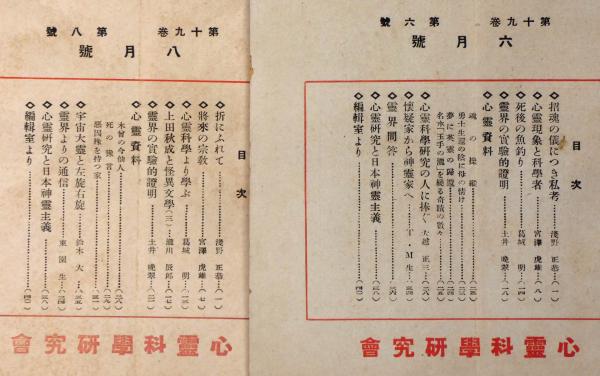 第十九卷 第六號
六月號
目次
◇招魂の儀につき私考 淺野正恭 (一)
◇心靈現象と科學者 宮澤虎雄 (八)
◇死後の魚釣り 葛城明 (一四)
◇靈界の實驗的證明 土井晩翠 (一八)
◇心靈資料
魂の操縱
勇士生還の陰に母の情け
夢に英靈の歸還
名水『玉手の瀧』を繞る奇蹟の數々
◇心靈科學研究の人に捧ぐ 大越正三
◇懷疑家から神靈家へ T・M生
◇靈界問答
◇心靈研究と日本神靈主義
◇編輯室より
心靈科學研究會
第十九卷 第八號
八月號
目次
◇折にふれて 淺野正恭 (一)
◇將來の宗教 宮澤虎雄 (七)
◇心靈科學より學ぶ 葛城明
◇上田秋成と怪異文學(三) 瀧川辰郎 (一七)
◇靈界の實驗的證明 土井晩翠
◇心靈資料
木曾の今仙人
死の豫言
惡因緣を持つ家
◇宇宙大靈と左旋右旋 鈴木大
◇靈界よりの通信 東園生
◇心靈研究と日本神靈主義
◇編輯室より
心靈科學研究會